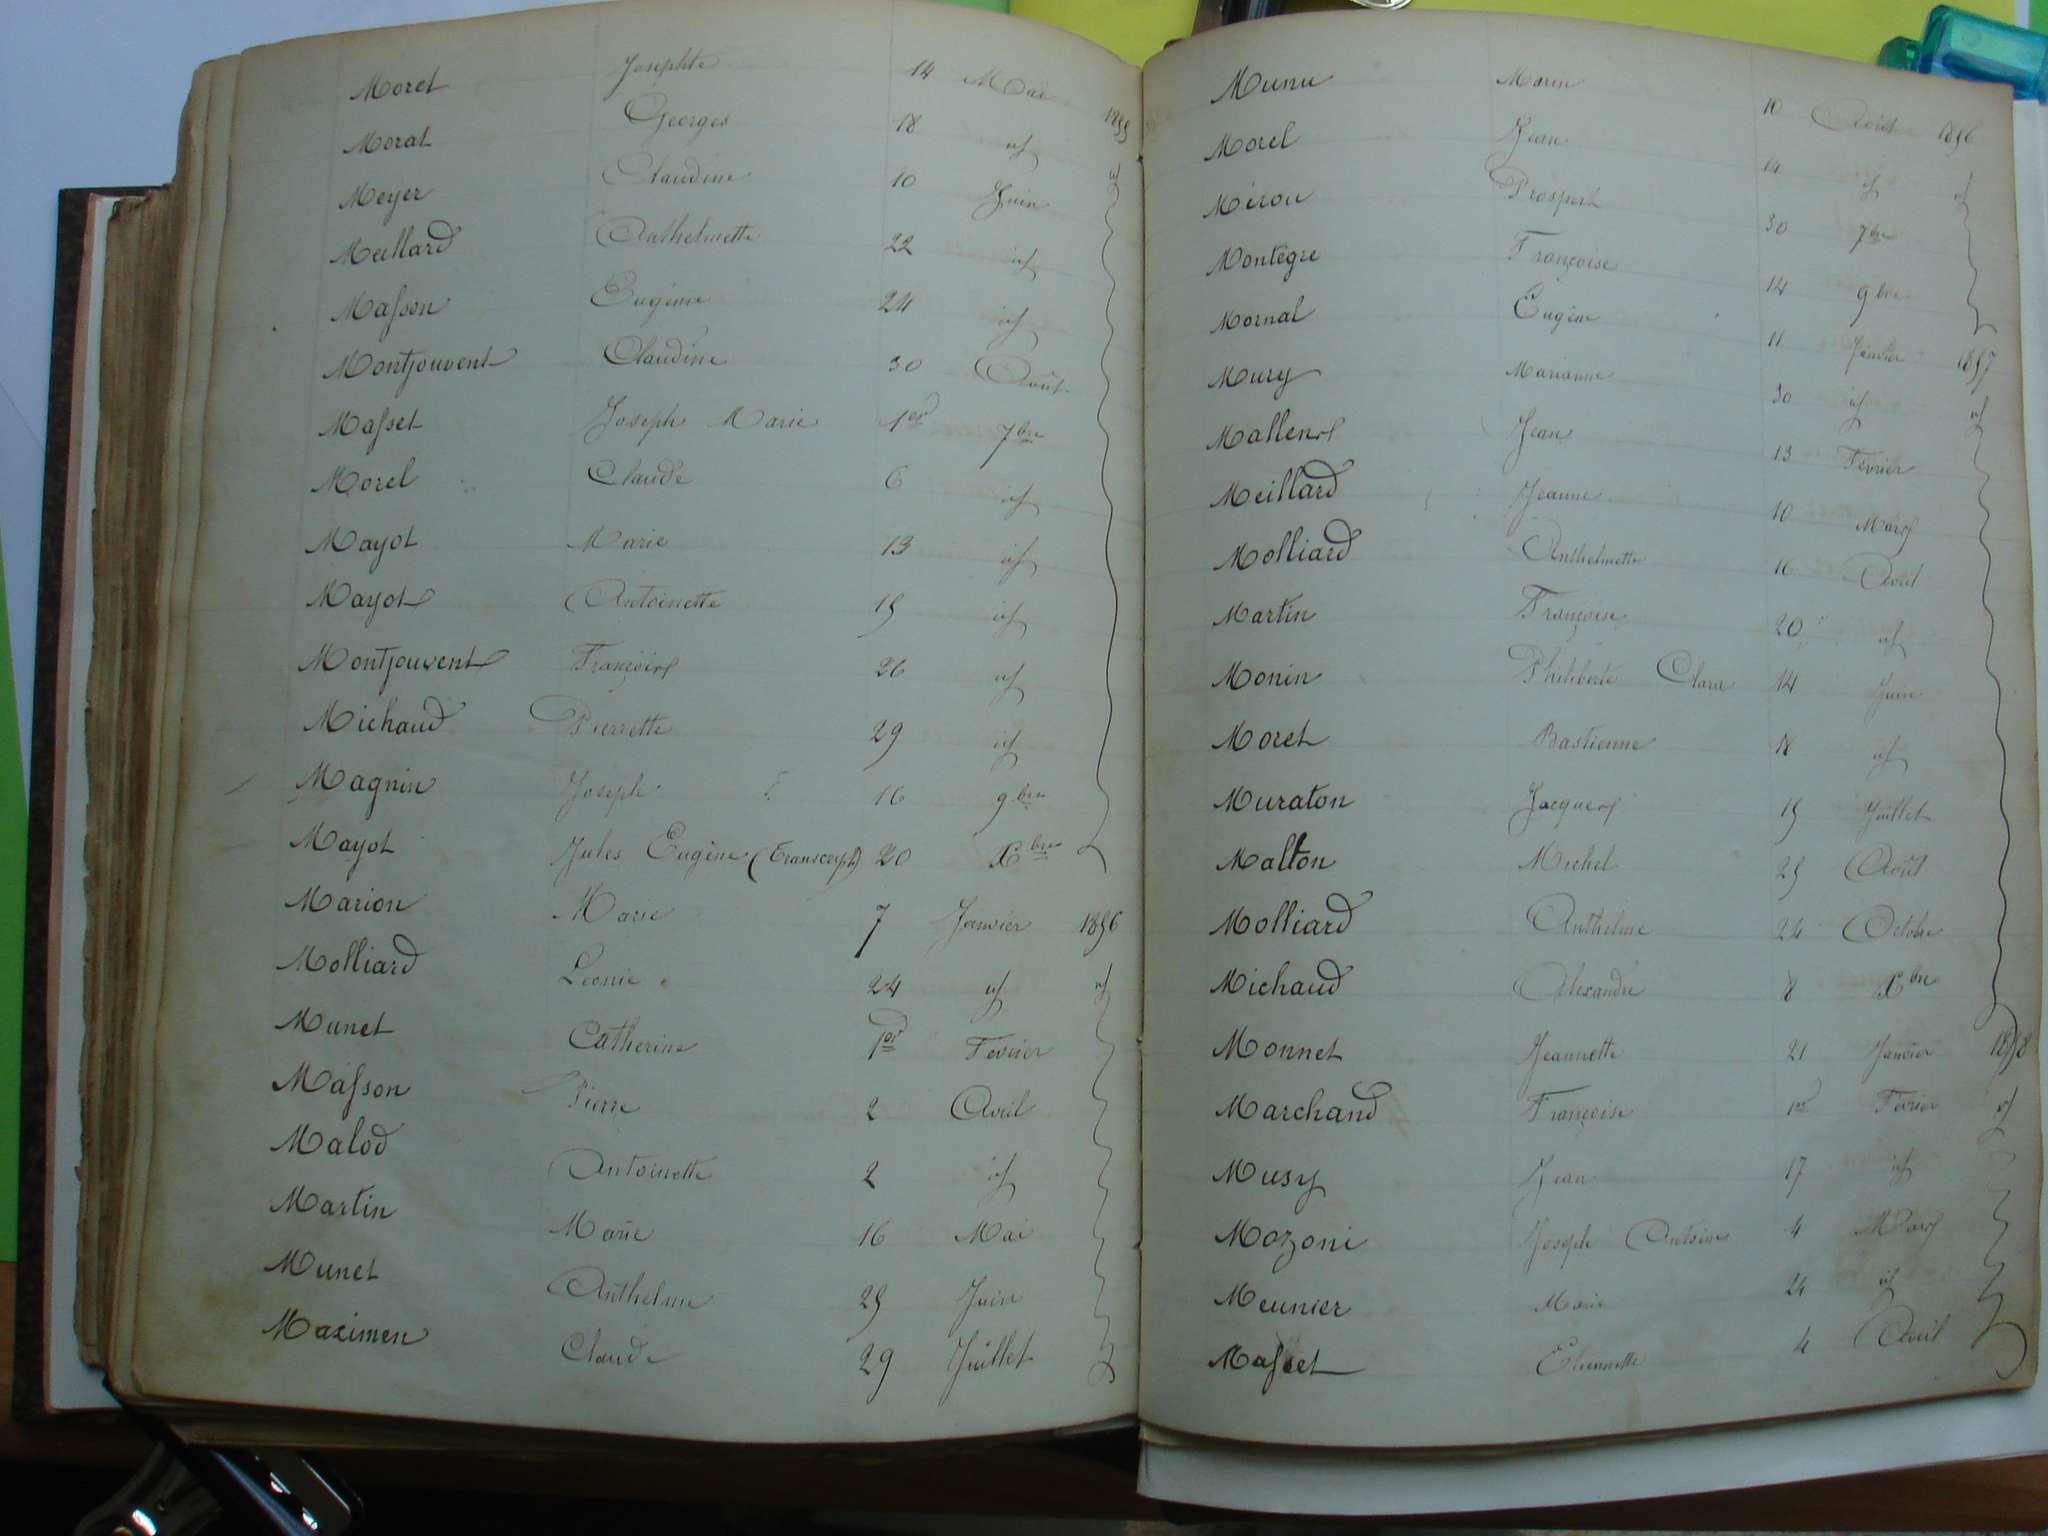 Moret Josephte 14 Mai 1855
Morat Georges 18 id
Meyer Claudine 10 Juin id
Meillard Anthelmette 22 id
Masson Eugénie 24 id
Montjouvent Claudine 30 Août
Masset Joseph Marie 1er 7bre
Morel Claude 6 id
Mayot Marie 13 id
Mayot Antoinette 15 id
Montjouvent François 26 id
Michaud Pierrette 29 id
Magnin Joseph 16 9bre
Mayot Jules Eugène (Transcript) 20 Xbre
Marion Marie 7 Janvier 1856
Molliard Léonie 24 id id
Munet Catherine 1er Fevrier
Masson Pierre 2 Avril
Malod Antoinette 2 id
Martin Marie 16 Mai
Munet Anthelme 25 Juin
Maximen Claude 29 Juillet
Munu Marin 10 Août 1856
Morel Jean 14 id id
Mérou Prospert 30 7bre
Montègre Françoise 12 9bre
Mornal Eugène 11 Janvier 1857
Mury Marianne 30 id id
Mallens Jean 13 Fevrier
Meillard Jeanne 10 Mars
Molliard Anthelmette 16 Avril
Martin Françoise 20 id
Monin Philiberte Clara 14 Juin
Moret Bastienne 18 id
Muraton Jacques 15 Juillet
Malton Michel 25 Août
Molliard Anthelme 24 Octobre
Michaud Alexandre 8 Xbre
Monnet Jeannette 21 Janvier 1858
Marchand Françoise 1er Fevrier id
Musy Jean 17 id
Mozoni Joseph Antoine 4 Mars
Meunier Marie 24 id
Masset Etiennette 4 Avril